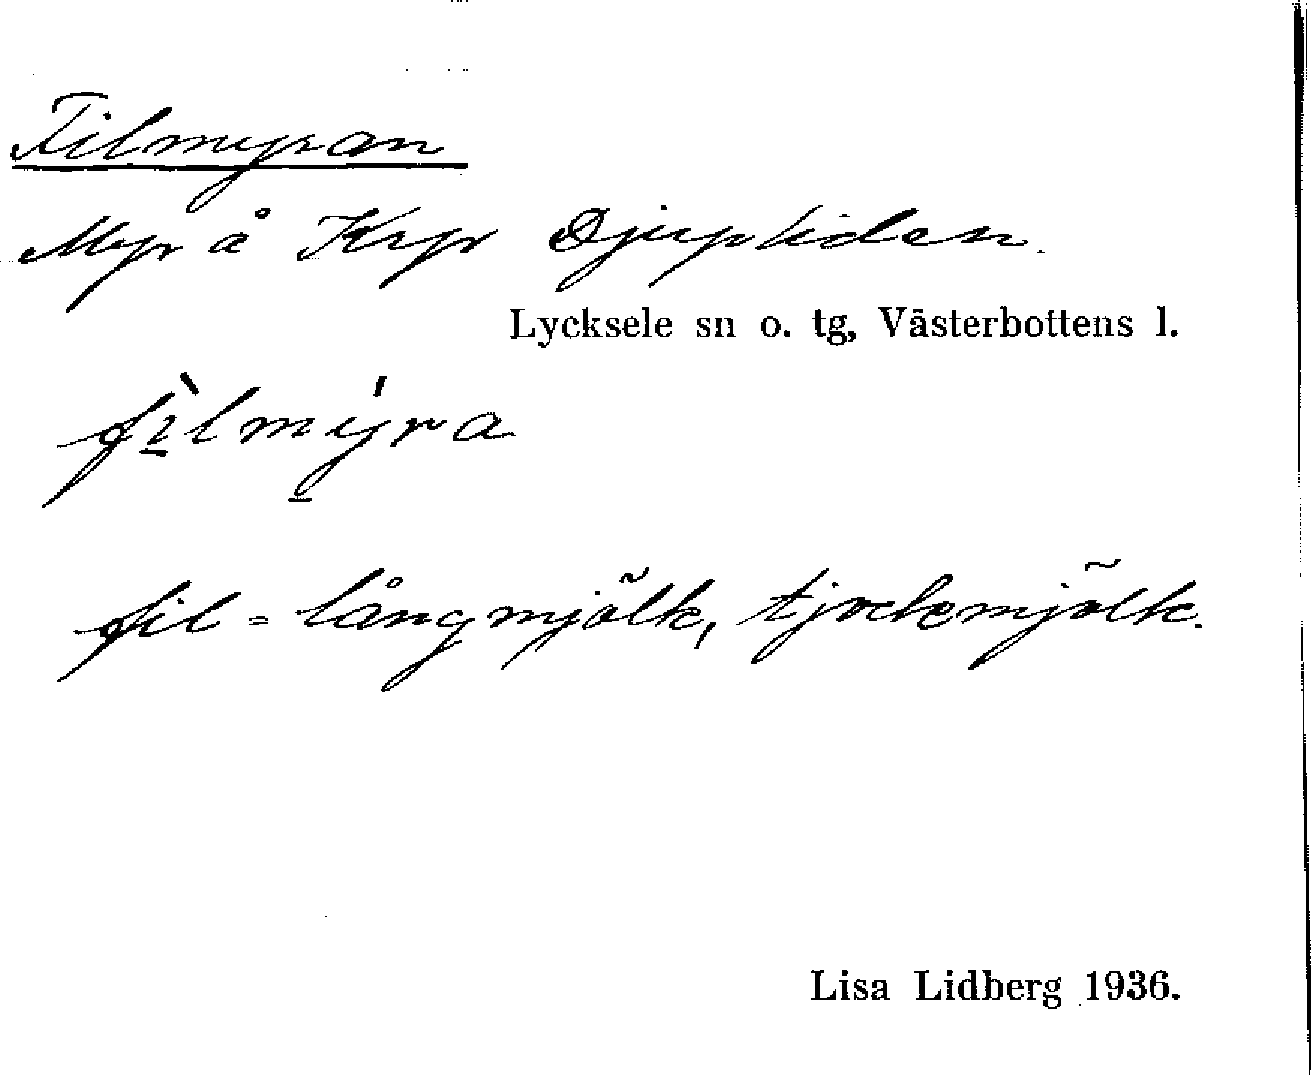 Filmyran
Myr å Krp Djupliden.
Lycksele sn o. tg, Västerbottens l.
fìlmýra
fil = långmjölk, tjockmjölk.
Lisa Lidberg 1936.